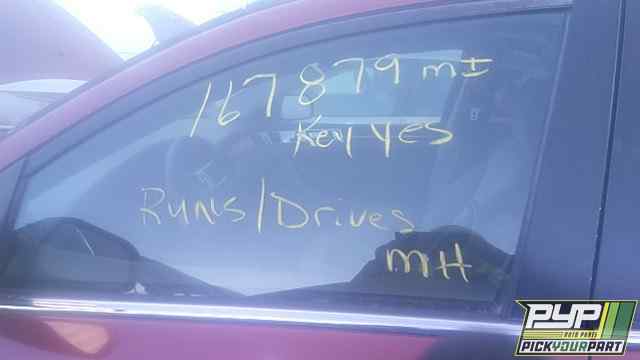 167879 mI
Key yes
Runs/Drives
MH
PYP
AUTO PARTS
PICKYOURPART